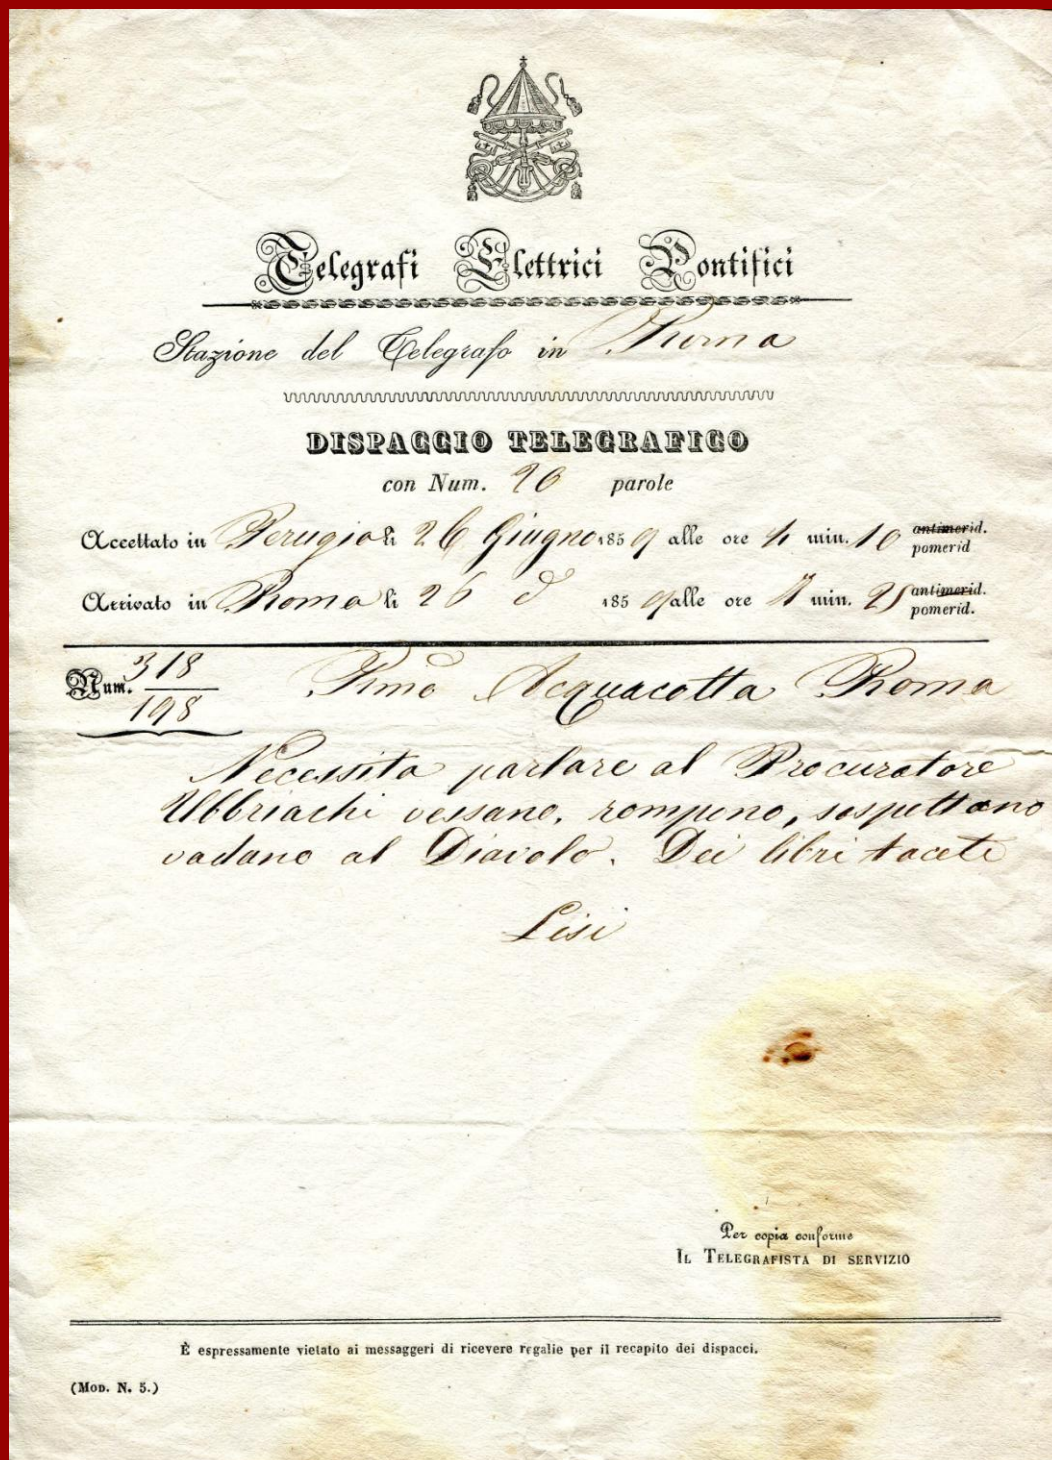 Telegrafi Elettrici Pontifici
Stazione del Telegrafo in Roma
DISPACCIO TELEGRAFICO
con Num. 20 parole
Accettato in Perugia li 26 Giugno 1859 alle ore 4 min. 10 antimerid. pomerid
Arrivato in Roma li 26 d 1859 alle ore min. antimerid. pomerid.
Num. 318
198
Acquacotta Roma
Necessita parlare al Procuratore
Ubbriachi vessano, rompono, sospettano
vadano al Diavolo. Dei libri tacete
Lisi
Per copia conforme
IL TELEGRAFISTA DI SERVIZIO
È espressamente vietato ai messaggeri di ricevere regalie per il recapito dei dispacci.
(MOD. N. 5.)